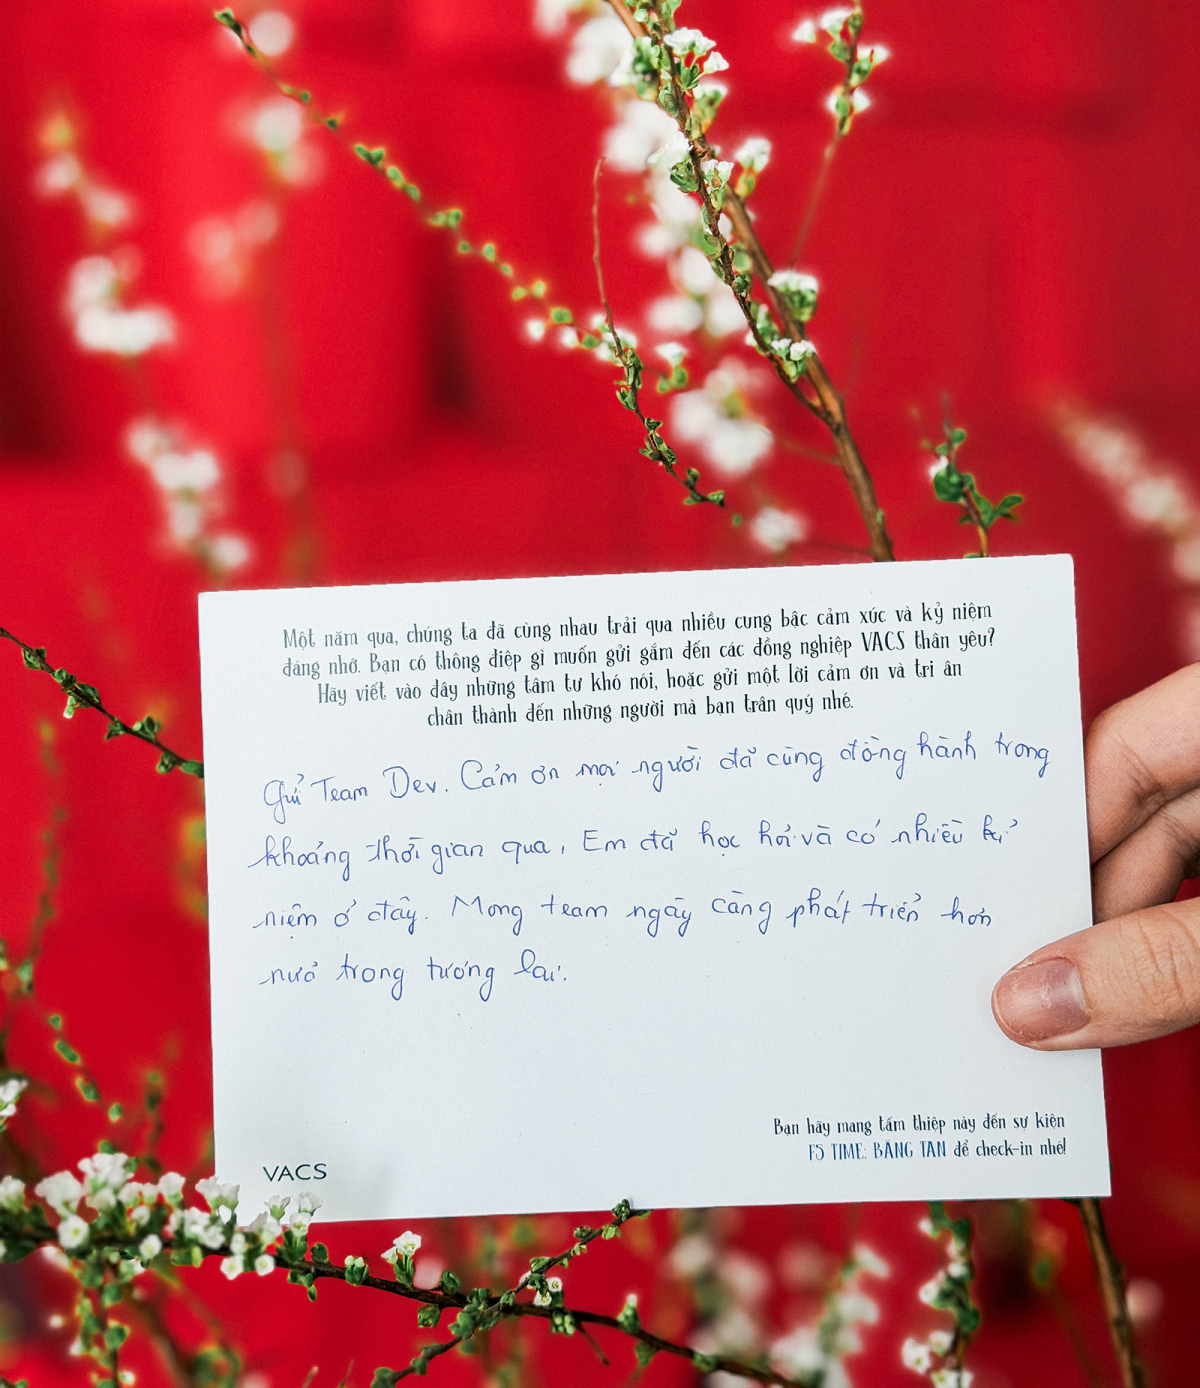 Một năm qua, chúng ta đã cùng nhau trải qua nhiều cung bậc cảm xúc và kỷ niệm
đáng nhớ. Bạn có thông điệp gì muốn gửi gắm đến các đồng nghiệp VACS thân yêu?
Hãy viết vào đây những tâm tư khó nói, hoặc gửi một lời cảm ơn và tri ân
chân thành đến những người mà bạn trân quý nhé.
Gửi Team Dev. Cảm ơn mọi người đã cùng đồng hành trong
khoảng thời gian qua, Em đã học hỏi và có nhiều kỉ
niệm ở đây. Mong team ngày càng phát triển hơn
nữa trong tương lai.
Bạn hãy mang tấm thiệp này đến sự kiện
F5 TIME: BĂNG TAN để check-in nhé!
VACS